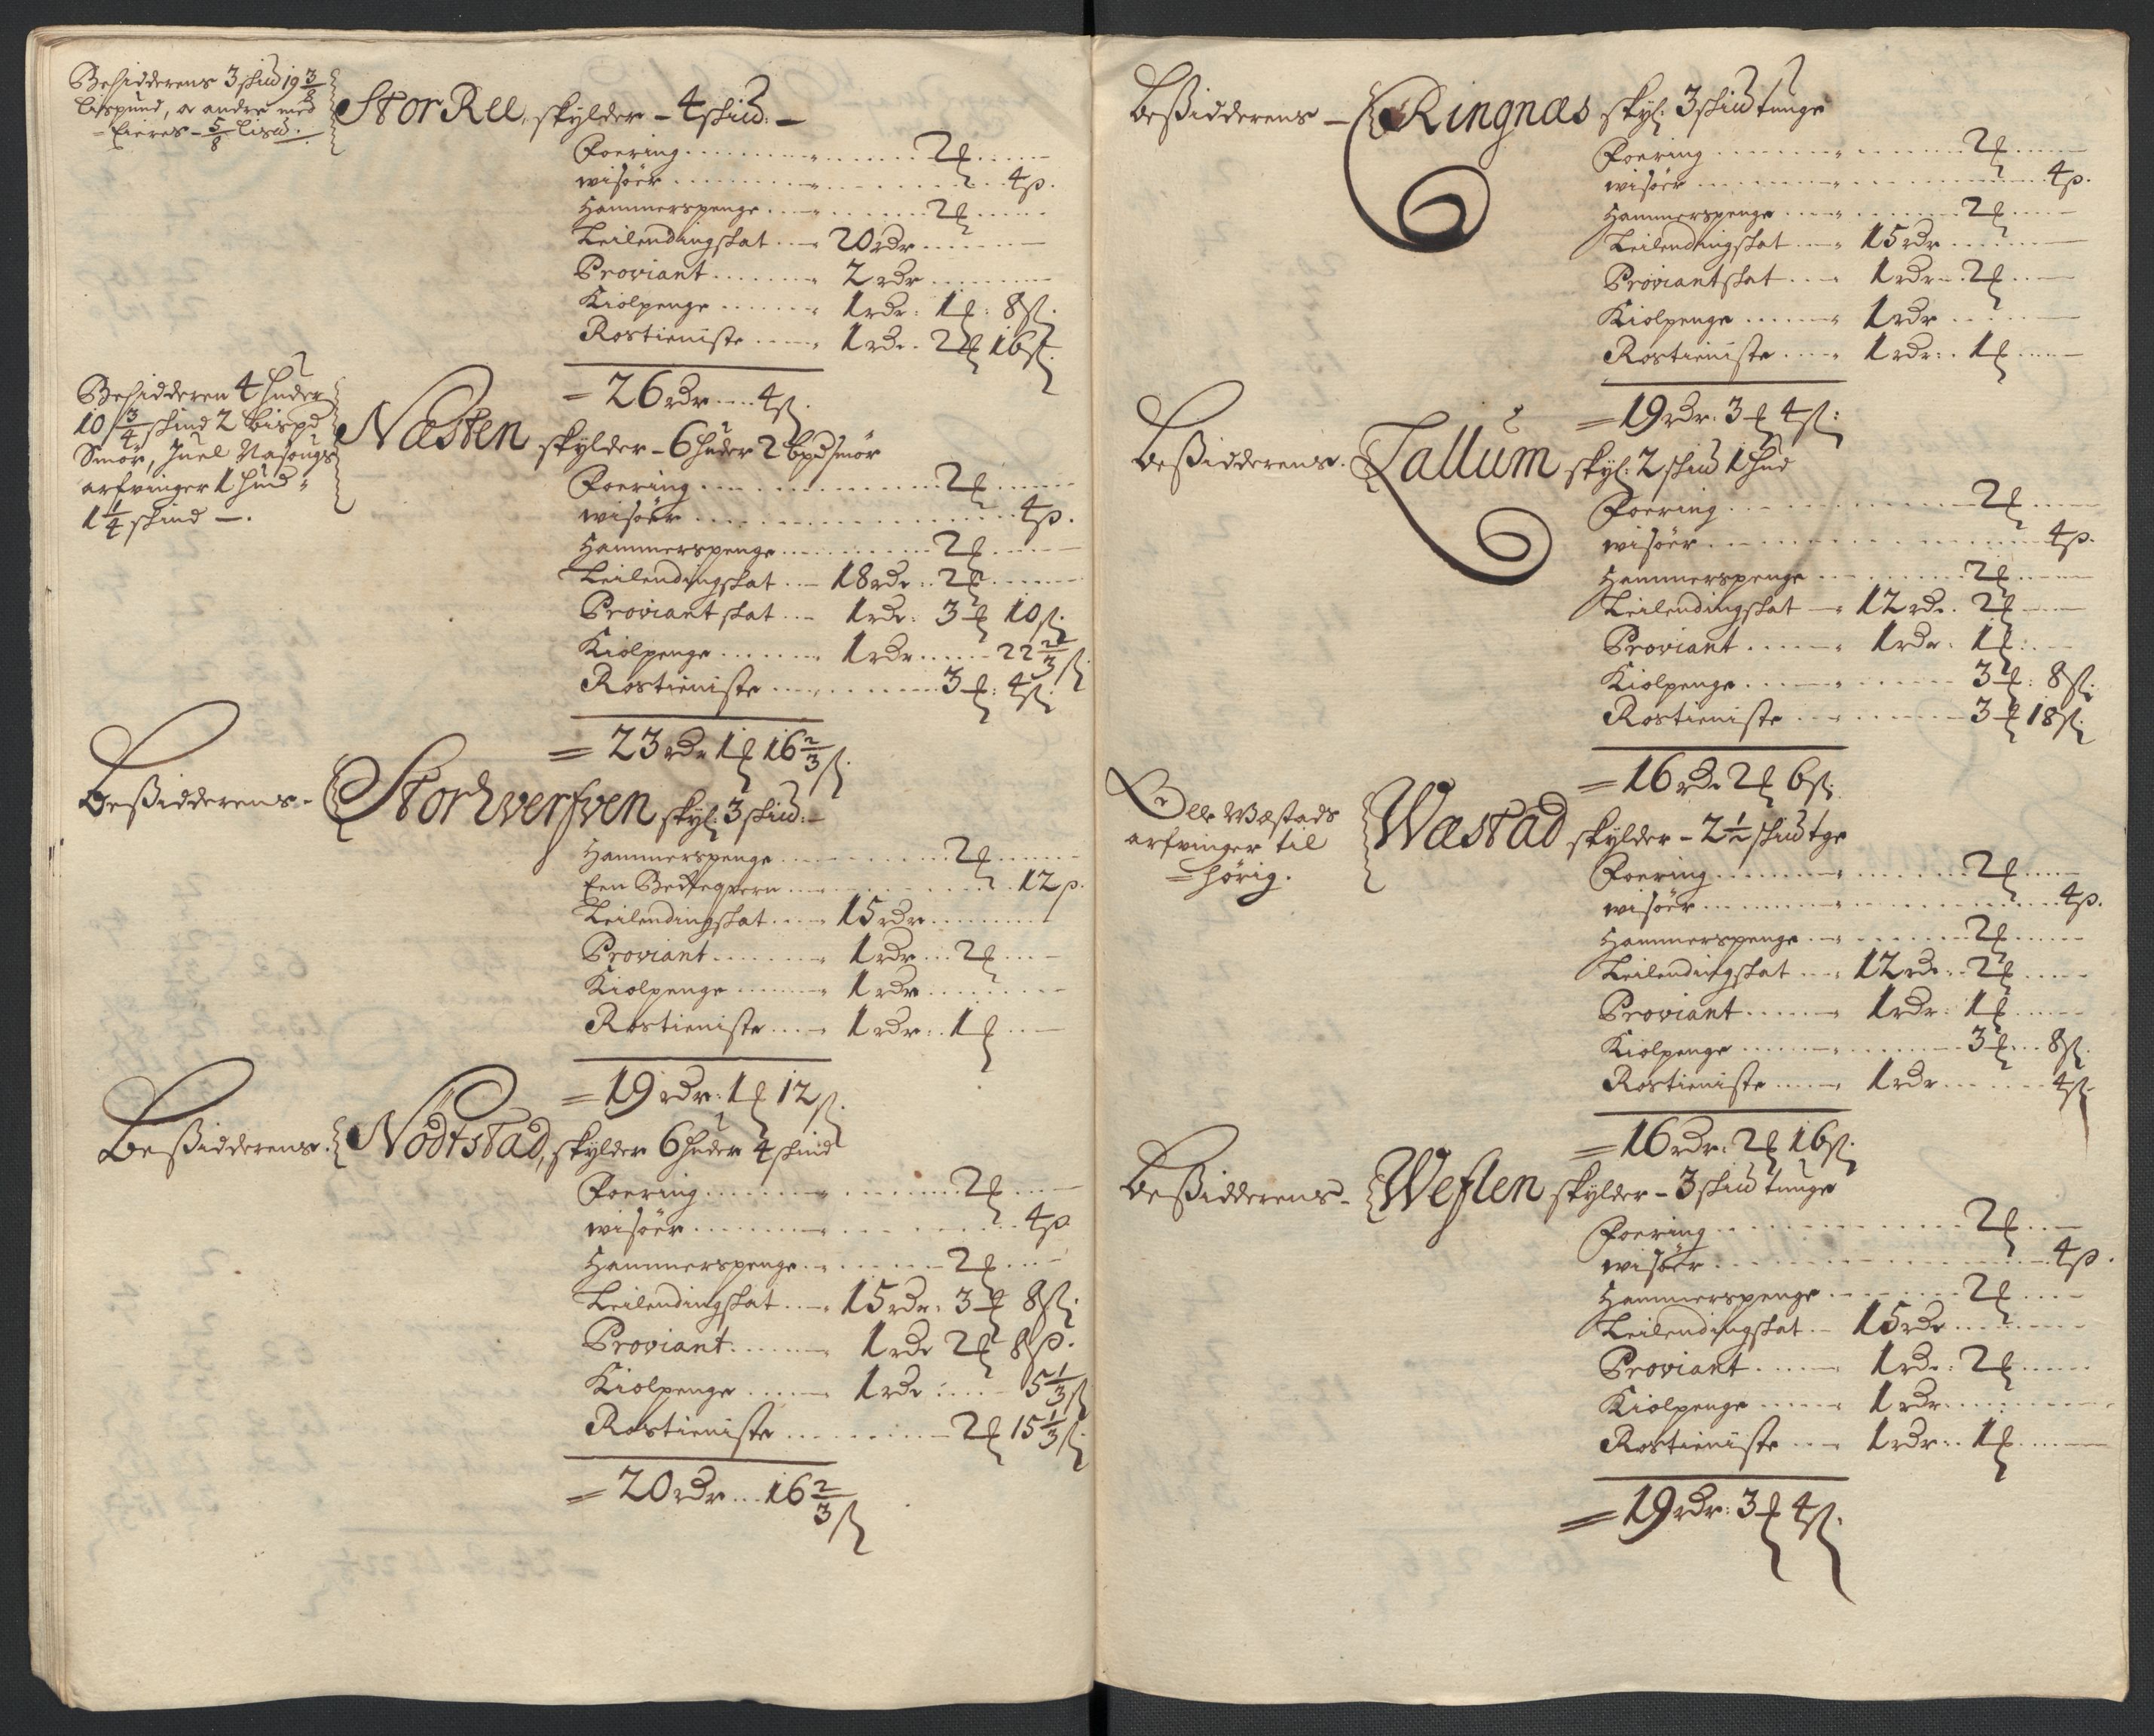 Besidderens 3 skid 19 3/8
Lispund, a andre med
= Eieres - 5/8 Lisu.
Stor Ree, skylder - 4 skid: -
Foering 2 f
wisöer 4 p.
Hammerspenge 2 f
Leilendingskat 20 rdr
Proviant 2 rdr
Kiolpenge 1 rdr: 1 f: 8 s.
Rostieniste 1 rdr. 2 f 16 s.
= 26 rdr 4 s.
Besidderen 4 huder
10 3/4 skind 2 bispd
Smör, Juel Nasongs
arfvinger 1 hud
1 1/4 skind -.
Næsten skylder - 6 huder 2 bpd smör
Foering 2 f
wisöer 4 p.
Hammerspenge 2 f
Leilendingskat 18 rdr: 2 f
Proviantskat 1 rdr: 3 f 10 s.
Kiolpenge 1 rdr 22 2/3 s
Rostieniste 3 f: 4 s.
= 23 rdr 1 f 16 2/3 s.
Beßidderens - Storhverfven skyl: 3 skid: -
Hammerspenge 2 f
Een 12 p.
Leilendingskat 15 rdr
Proviant 1 rdr 2 f
Kiolpenge 1 rdr
Rostieniste 1 rdr: 1 f
= 19 rdr: 1 f 12 s.
Beßidderens. Nodtstad, skylder 6 huder 4 skind
Foering 2 f
wisöer 4 p
Hammerspenge 2 f
Leilendingskat 15 rdr: 3 f 8 s.
Proviant 1 rdr 2 f 8 p.
Kiolpenge 1 rdr 5 1/3 s
Rostieniste 2 f 15 1/3 s.
= 20 rdr 16 2/3 s
Beßidderens - Ringnæs skyl: 3 skid tunge
Foering 2 f
wisöer 4 p.
Hammerspenge 2 f
Leilendingskat 15 rdr
Proviantskat 1 rdr 2 f
Kiolpenge 1 rdr
Rostieniste 1 rdr: 1 f
= 19 rdr. 3 f 4 s:
Beßidderens. Tallum skyl: 2 skid 1 hud
Foering 2 f
wisöer 4 p.
Hammerspenge 2 f
Leilendingskat 12 rdr. 2 f
Proviant 1 rdr: 1 f:
Kiolpenge 3 f: 8 s.
Rostieniste 3 f 18 s.
= 16 rdr 2 f 6 s.
Olle Wæstads
arfvinger til
= hörig.
Wæstad skylder - 2 1/2 skid tge
Foering 2 f
wisöer 4 p.
Hammerspenge 2 f
Leilendingskat 12 rdr: 2 f
Proviant 1 rdr: 1 f
Kiolpenge 3 f 8 s.
Rostieniste 1 rdr 4 s.
= 16 rdr: 2 f 16 s.
Beßidderens - Weflen skylder - 3 skid tunge
Foering 2 f
wisöer 4 p.
Hammerspenge 2 f
Leilendingskat 15 rdr
Proviant 1 rdr: 2 f
Kiolpenge 1 rdr
Rostieniste 1 rdr: 1 f
= 19 rdr: 3 f 4 s.